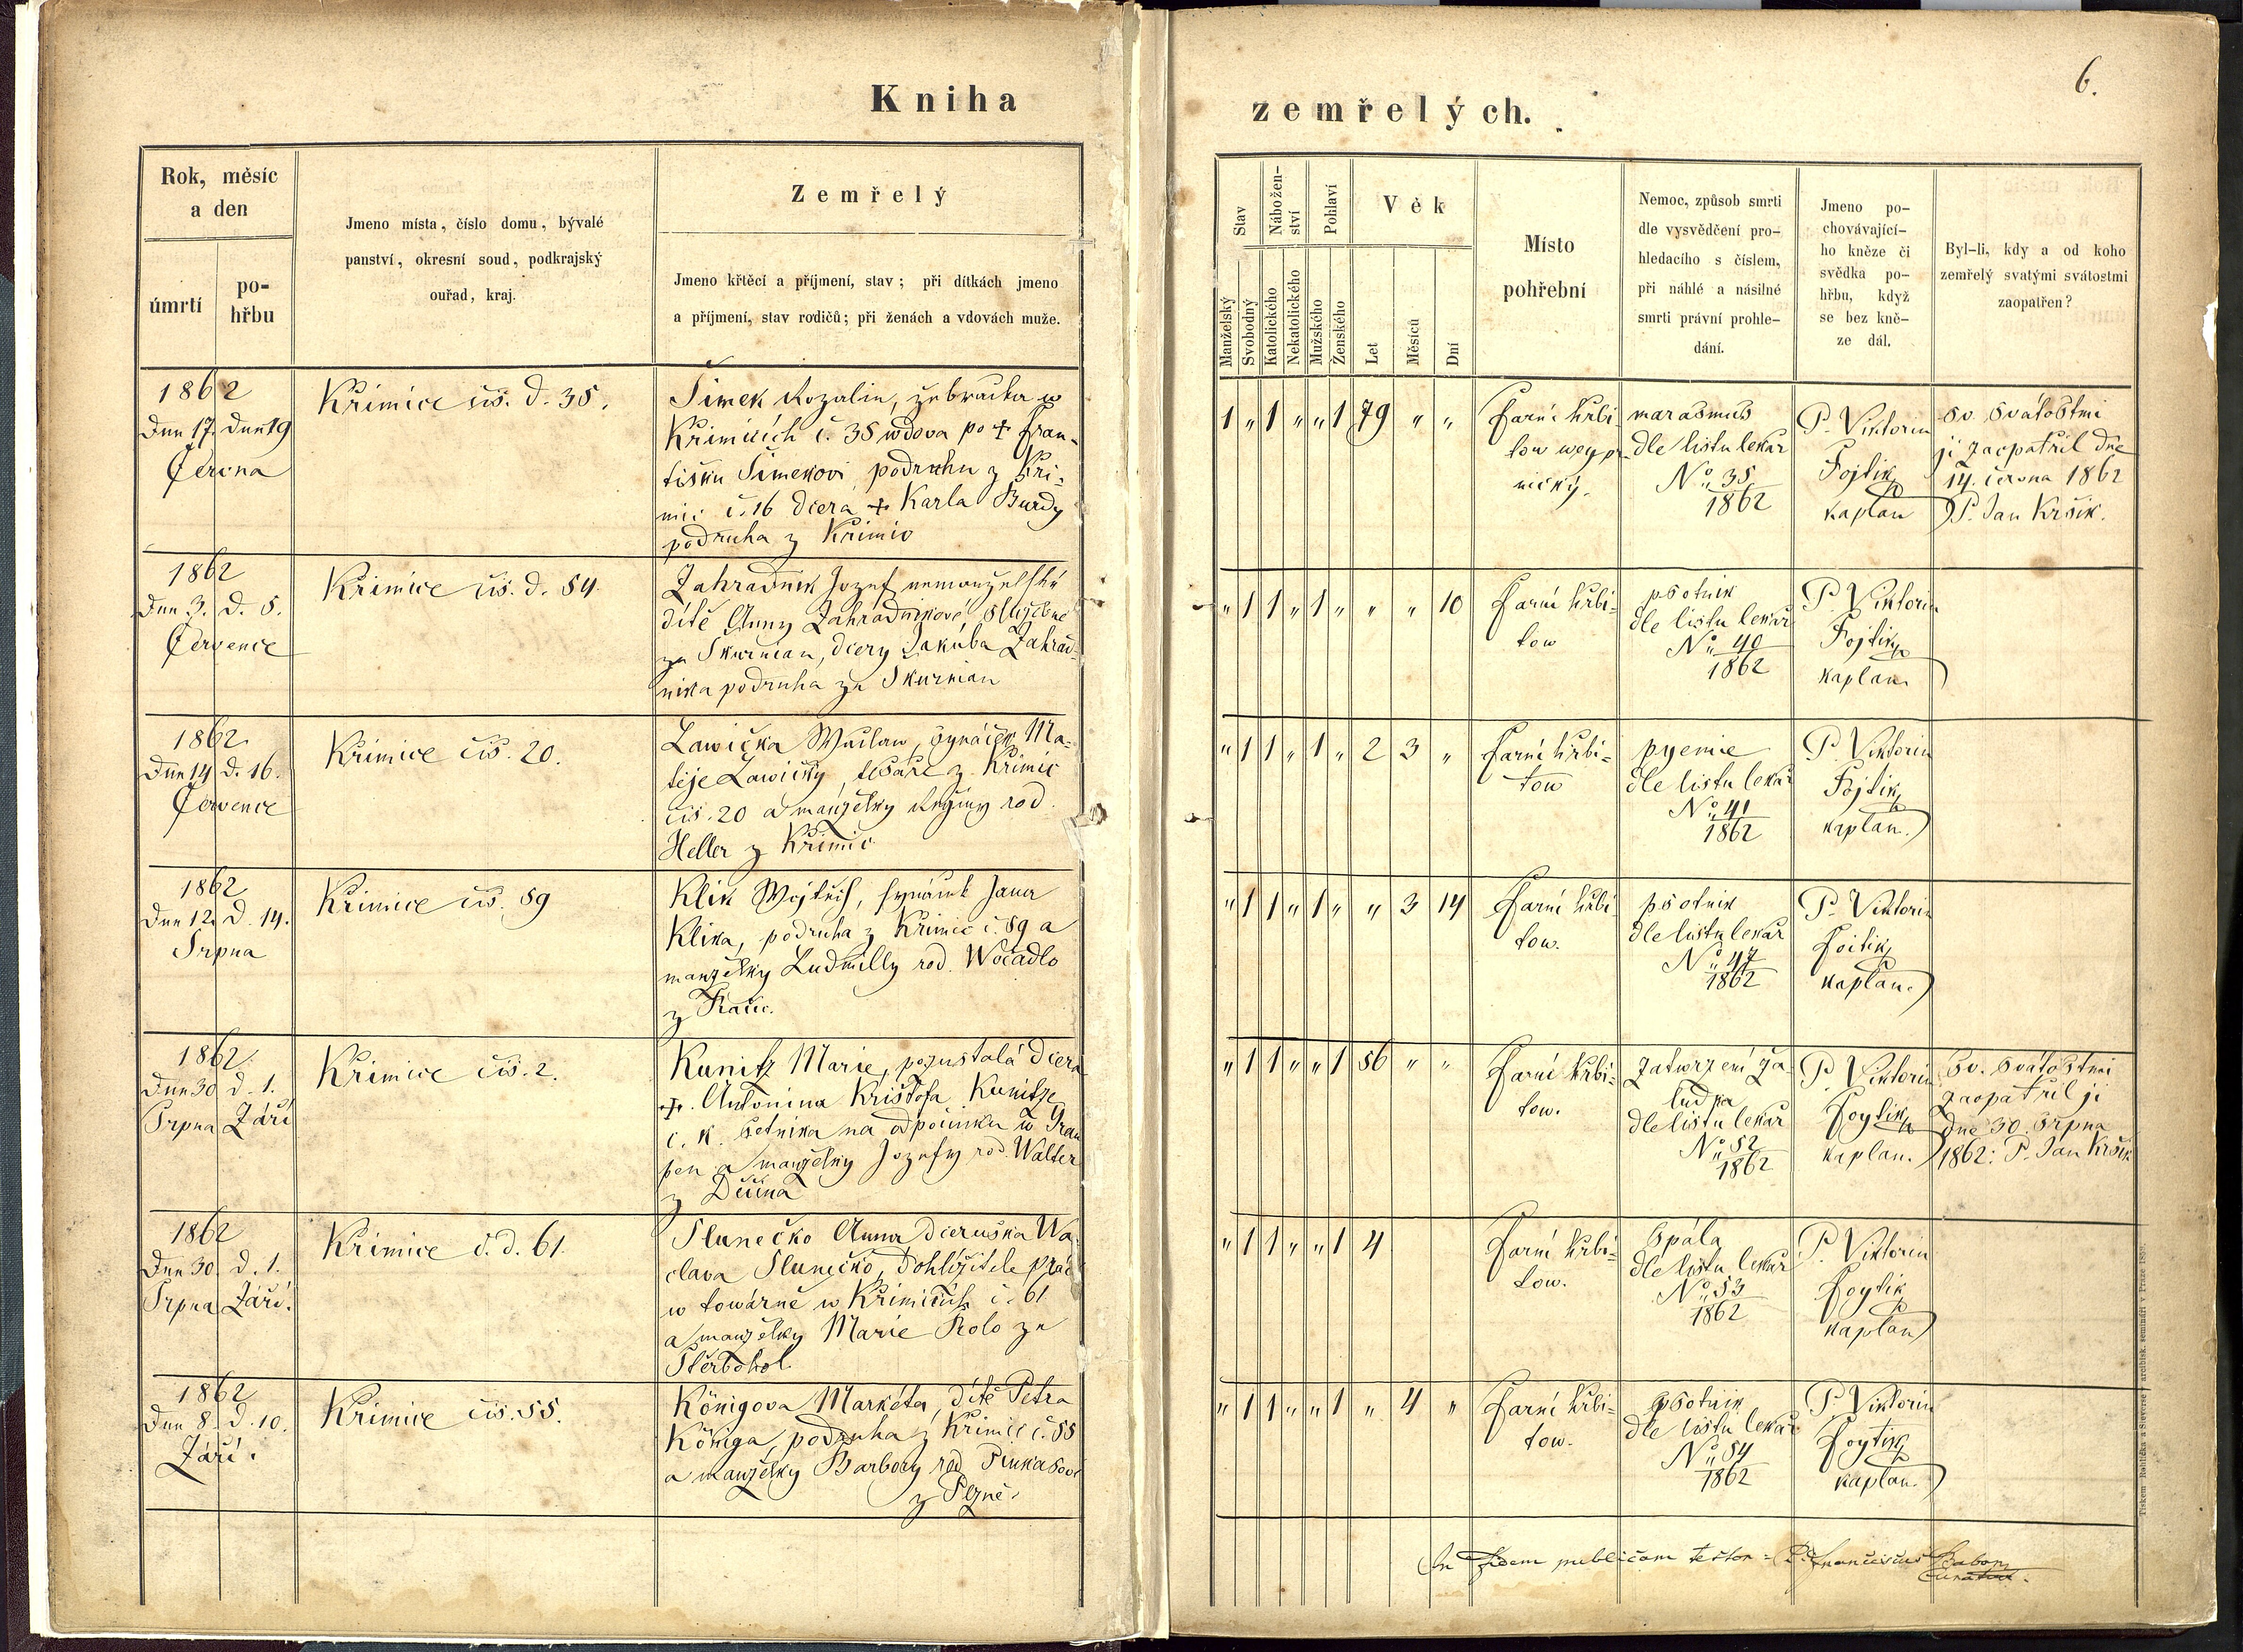 Kniha
zemřelých.
6.
Rok, měsíc
a den
úmrtí
po-
hřbu
Jmeno místa, číslo domu, bývalé
panství, okresní soud, podkrajský
ouřad, kraj.
Zemřelý
Jmeno křtěcí a příjmení, stav; při dítkách jmeno
a příjmení, stav rodičů; při ženách a vdovách muže.
Stav
Manželský
Svobodný
Nábožen-
ství
Katolického
Nekatolického
Pohlaví
Mužského
Ženského
Věk
Let
Měsíců
Dní
Místo
pohřební
Nemoc, způsob smrti
dle vysvědčení pro-
hledacího s číslem,
při náhlé a násilné
smrti právní prohle-
dání.
Jmeno po-
chovávající-
ho kněze či
svědka po-
hřbu, když
se bez kně-
ze dál.
Byl-li, kdy a od koho
zemřelý svatými svátostmi
zaopatřen?
1862
Dne 17. Dne 19
Června
Křimice čís. d. 35.
Šimek Rozalie, žebračka w
Křimicích č. 35 wdova po + Fran-
tišku Šimekovi, podruhu z Kři-
mic č. 16 dcera + Karla Burdy
podruha z Křimic
1 „ 1 „ „ 1 79 „ „
Farní hřbi-
tow
nický.
marasmus
dle listu lekař
No. 35
1862
P. Viktorin
Fojtik
kaplan
Sv. Svátostmi
ji zaopatřil dne
14. června 1862
P. Jan Kršik.
1862
Dne 3. d. 5.
Července
Křimice čís. d. 54.
Zahradnik Jozef nemanželské
dítě Anny Zahradnikové, služebné
ze Skurnian, dcery Jakúba Zahrad-
nika podruha ze Skurnian
„ 1 1 „ 1 „ „ „ 10
Farní hřbi-
tow
psotnik
dle listu lekař
No. 40
1862
P. Viktorin
Fojtik
kaplan.
1862
Dne 14 d. 16.
Července
Křimice čís. 20.
Lawička Waclaw, synáček Ma-
těje Lawičky, tesaře z Křimic
čís. 20 a manželky Reginy rod.
Heller z Křimic.
„ 1 1 „ 1 „ 2 3 „
Farní hřbi-
tow
pyemie
dle listu lekař
No. 41
1862
P. Viktorin
Fojtik
kaplan.
1862
Dne 12. d. 14.
Srpna
Křimice čís. 59
Klik Wojtěch, synáček Jana
Klika, podruha z Křimic č. 59 a
manželky Ludmilly rod. Wočadlo
z Račic.
„ 1 1 „ 1 „ „ 3 14
Farní hřbi-
tow.
psotnik
dle listu lekař
No. 47
1862
P. Viktorin
Foitik
kaplan.
1862.
Dne 30 d. 1.
Srpna Září
Křimice čís. 2.
Kunitz Marie, pozustalá dcera
+. Antonina Krištofa Kunitze
c. k. setnika na odpočinku w
a manželky Jozefy rod. Walter
z Děčina
„ 1 1 „ „ 1 56 „ „
Farní hřbi-
tow.
Zatwrzení ža-
ludka
dle listu lekař
No. 52
1862
P. Viktorin
Foytik
kaplan.
Sv. Svátostmi
zaopatřil ji
dne 30. Srpna
1862: P. Jan Kršik
1862
Dne 30. d. 1.
Srpna Září.
Křimice č. d. 61.
Slunečko Anna dceruška Wa-
clava Slunečko, dohlížitele prác
w towárně w Křimicích č. 61
a manželky Marie Rolo ze
Štěrbohol.
„ 1 1 „ „ 1 4
Farní hřbi-
tow.
Spála
dle listu lekař
No. 53
1862
P. Viktorin
Foytik
kaplan
1862
Dne 8. d. 10.
Září.
Křimice čís. 55.
Königova Markéta, dítě Petra
Königa, podruha z Křimic č. 55
a manželky Barbory rod. Pinkasové
z Plzně.
„ 1 1 „ „ 1 „ 4 „
Farní hřbi-
tow.
psotnik
dle listu lekař
No. 54
1862
P. Viktorin
Foytik
kaplan.
In fidem publicam testor = P. Franciscus
Tiskem Rohlíčka a Sieverse / arcibisk. semináři v Praze 1859.